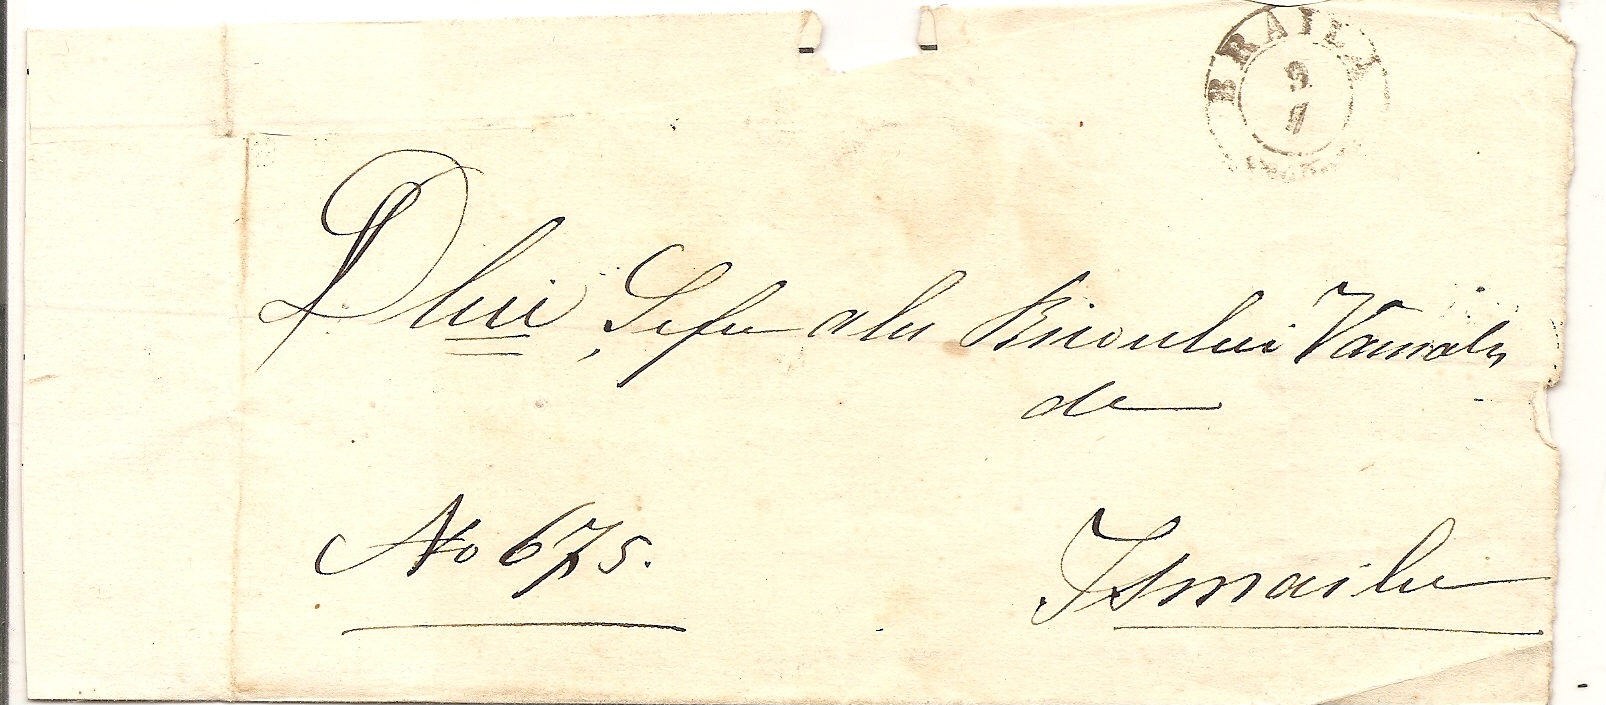 BRAILA
9
7
Dlui Șefu alu Biroului Vamalu
de
No 675.
Ismailu